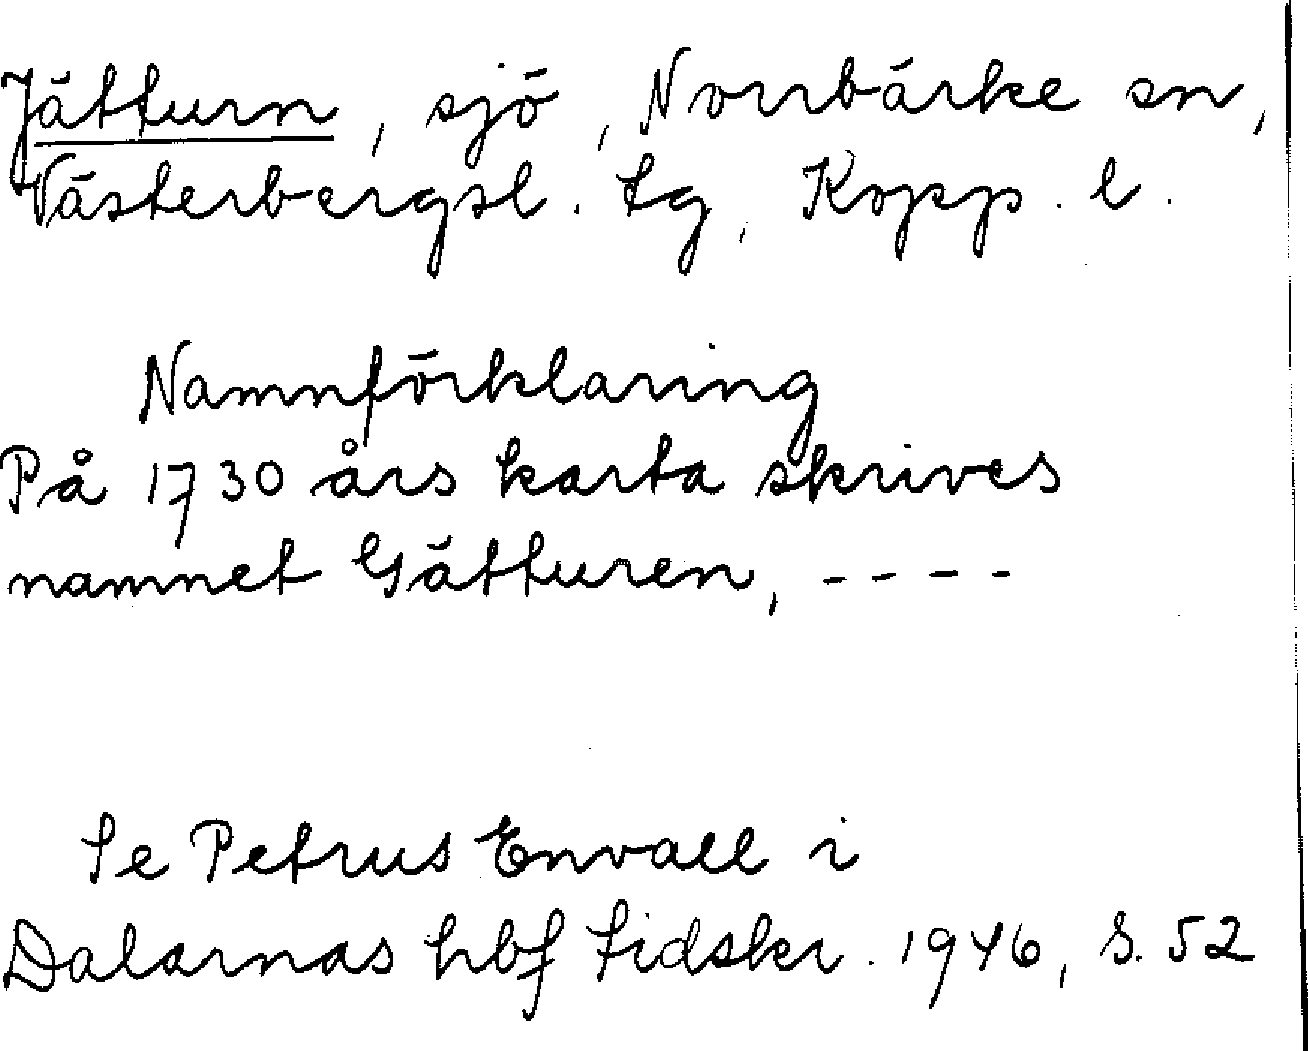 Jätturn, sjö, Norrbärke sn,
Västerbergsl. tg, Kopp. l.
Namnförklaring
På 1730 års karta skrives
namnet Gätturen, ----
Se Petrus Envall i
Dalarnas hbf tidskr. 1946, S. 52